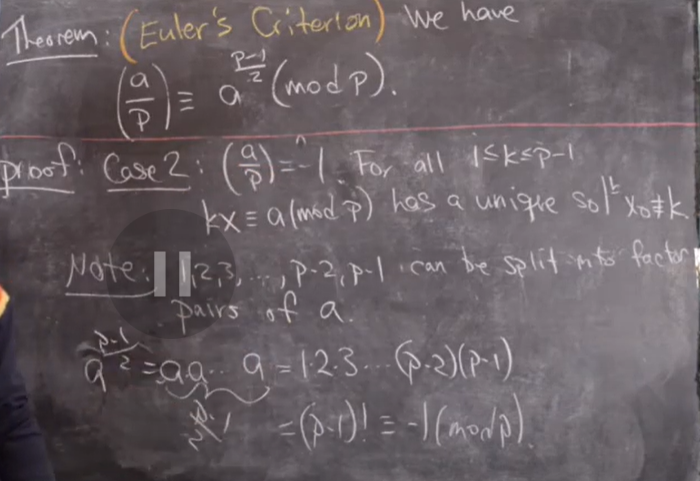 Theorem: (Euler's Criterion) We have
(a/p) ≡ a^((p-1)/2) (mod p).
Proof: Case 2: (a/p) = -1. For all 1≤k≤p-1
kx ≡ a (mod p) has a unique sol^n x₀≢k
Note: 1,2,3, ..., p-2, p-1 can be split into factor
pairs of a.
a^((p-1)/2) = a·a... a = 1·2·3...(p-2)(p-1)
(p-1)/2 = (p-1)! ≡ -1 (mod p).